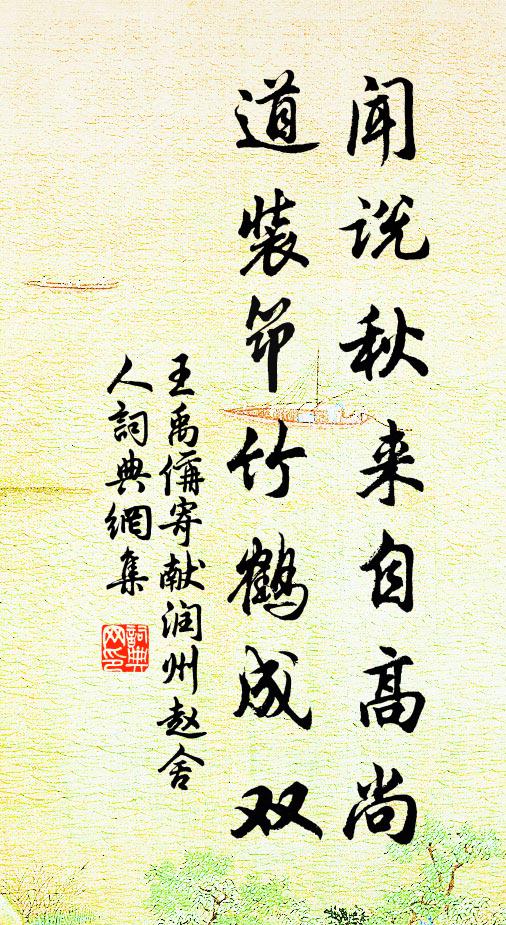 闻说秋来自高尚
道装筇竹鹤成双
王禹偁寄献润州赵舍
人詞典網集
詞典
网印